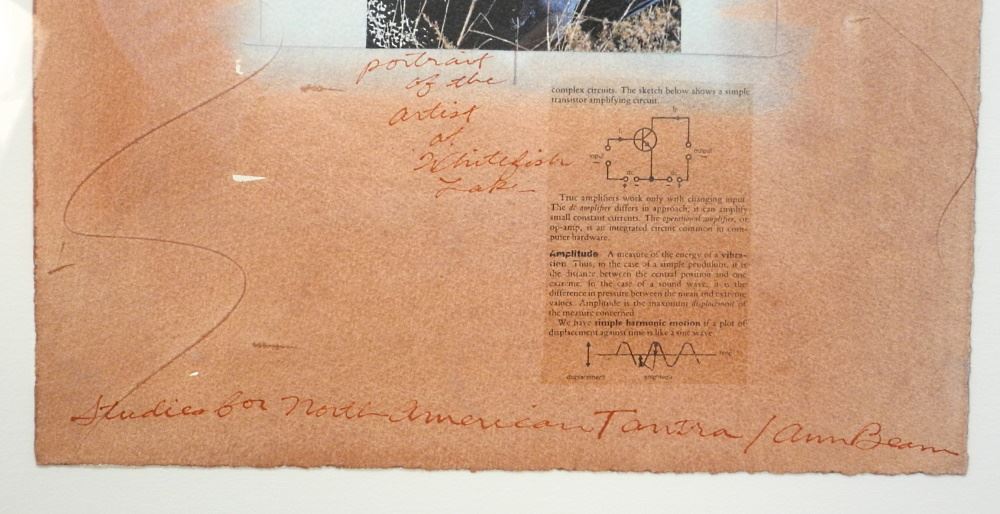 portrait
of the
artist
of
Whitefish
Lake
complex circuits. The sketch below shows a simple
transistor amplifying circuit.
input
output
True amplifiers work only with changing input.
The dc amplifier differs in approach; it can amplify
small constant currents. The operational amplifier, or
op-amp, is an integrated circuit common in com-
puter hardware.
Amplitude A measure of the energy of a vibra-
tion. Thus, in the case of a simple pendulum, it is
the distance between the central position and one
extreme. In the case of a sound wave, it is the
difference in pressure between the mean and extreme
values. Amplitude is the maximum displacement of
the measure concerned.
We have simple harmonic motion if a plot of
displacement against time is like a sine wave.
time
displacement
amplitude
Studies for North American Tantra / Ann Beam